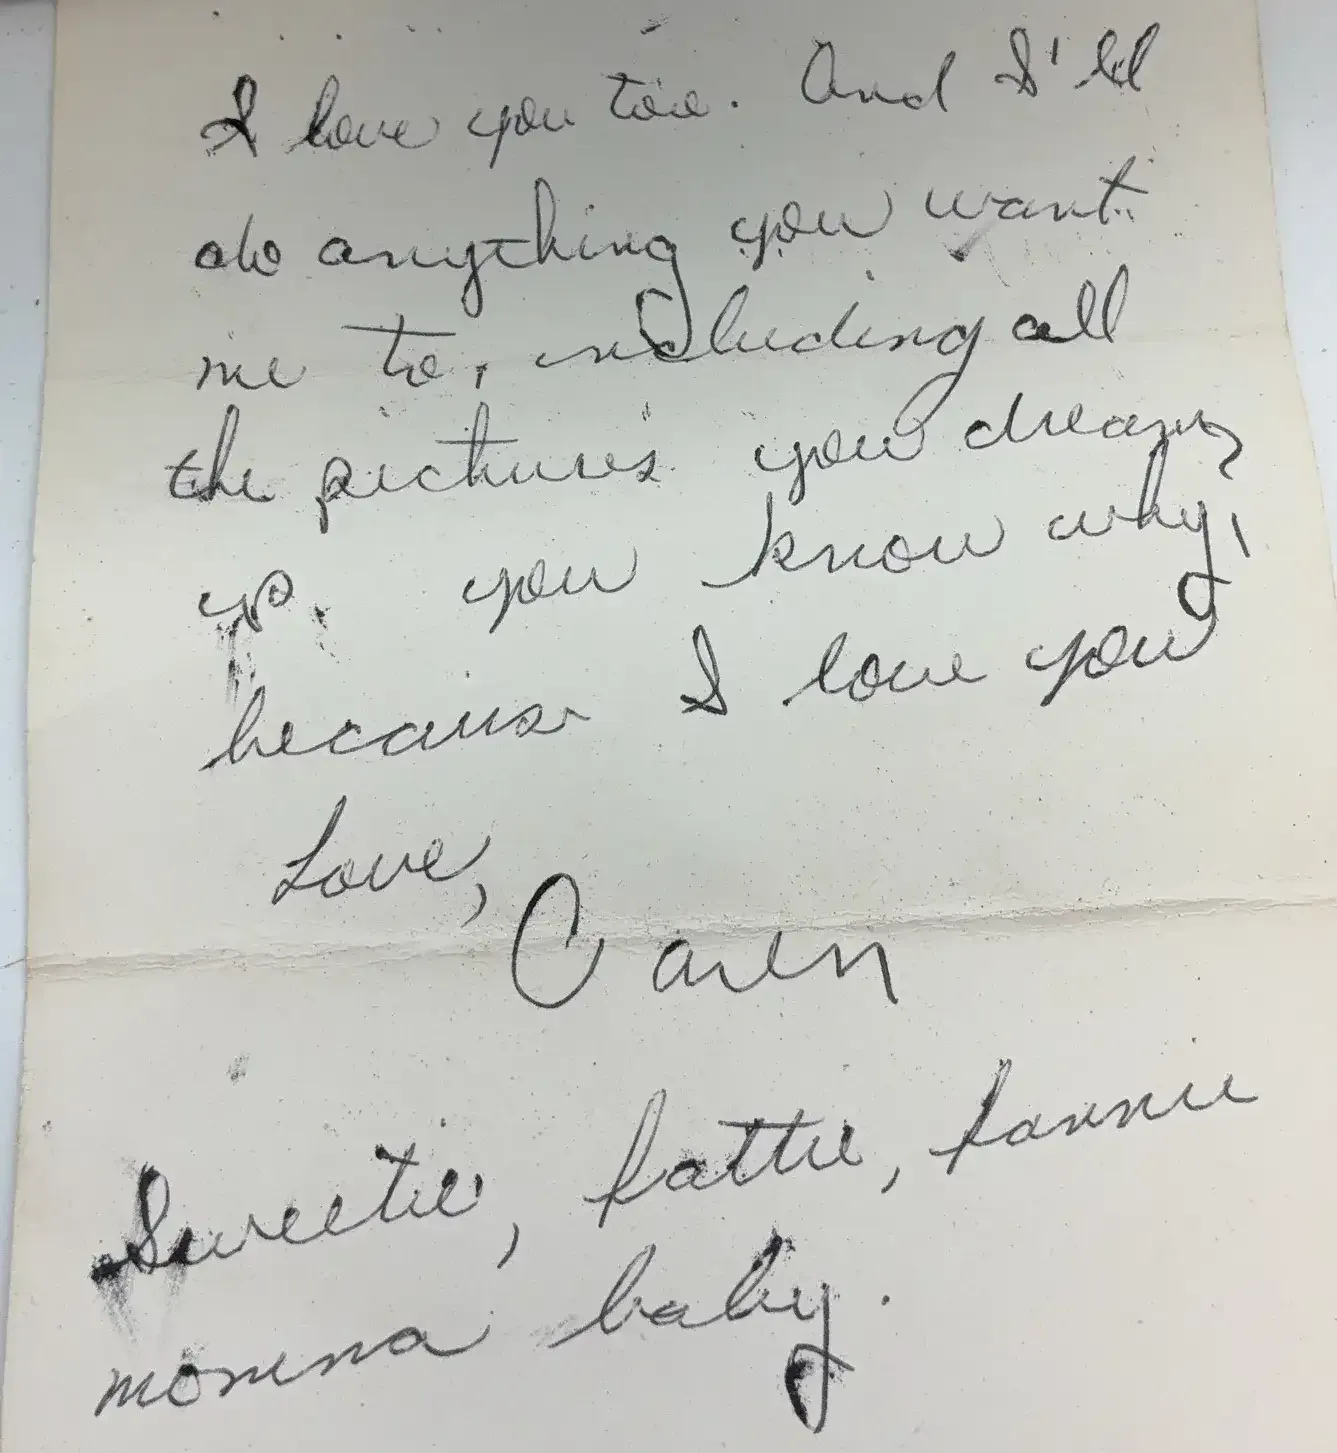 I love you too. And I'll
do anything you want
me to, including all
the pictures you dream,
up. you know why,
because I love you
Love,
Caren
Sweetie, fattie, fannie
momma baby.